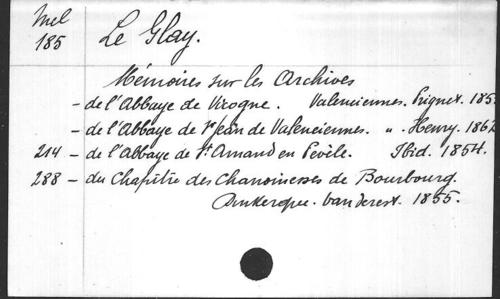 Mel
185 Le Glay.
Mémoires sur les Archives
- de l'Abbaye de Vicogne. Valenciennes. Prignet. 185
- de l'Abbaye de St Jean de Valenciennes. " . Henry. 1862
214 - de l'Abbaye de St Amand en Pevèle. Ibid. 1854.
288 - du Chapître des Chanoinesses de Bourbourg.
Dunkerque. Vanderest. 1855.